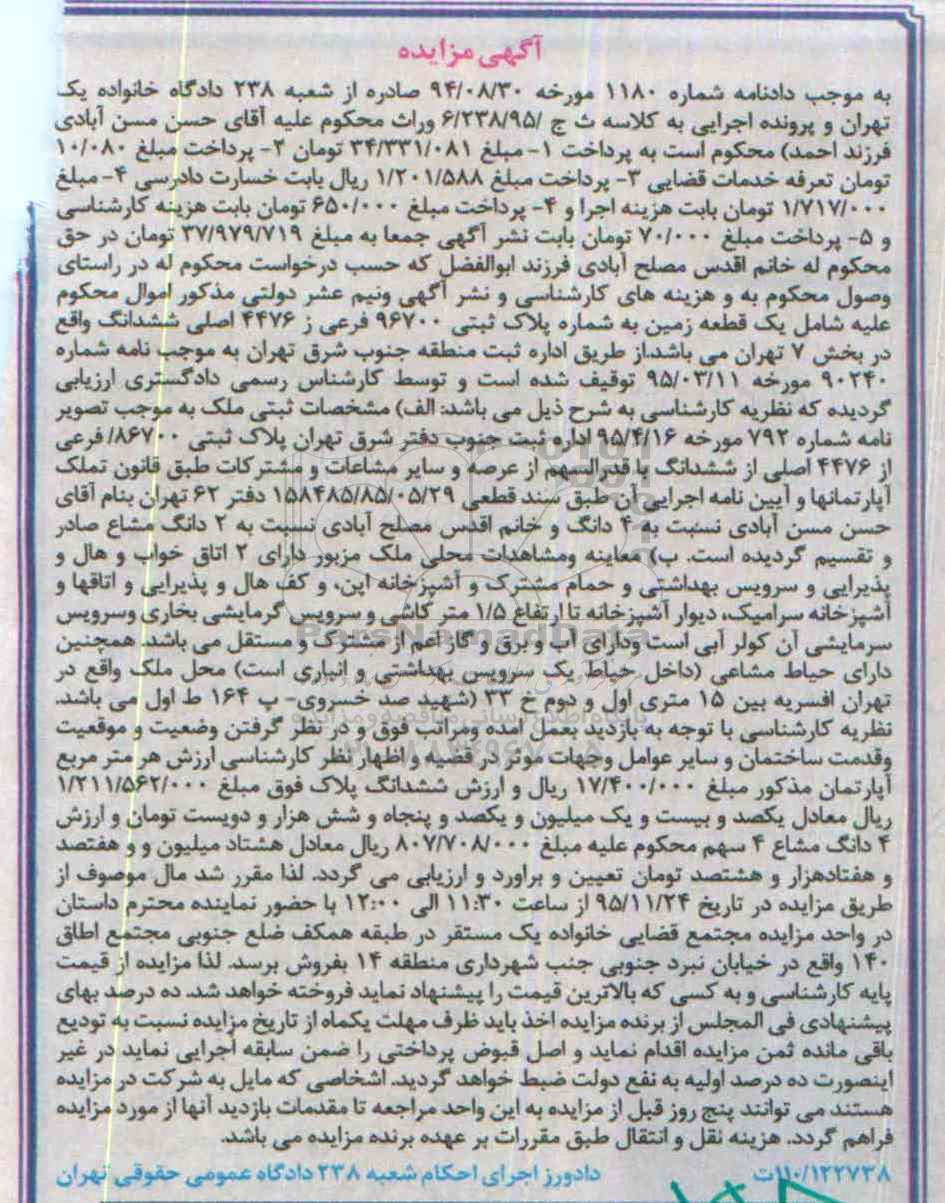 آگهی مزایده
به موجب دادنامه شماره ۱۱۸۰ مورخه ۹۴/۰۸/۳۰ صادره از شعبه ۲۳۸ دادگاه خانواده یک
تهران و پرونده اجرایی به کلاسه ث ج /۶/۲۳۸/۹۵ وراث محکوم علیه آقای حسن مسن آبادی
فرزند احمد) محکوم است به پرداخت ۱- مبلغ ۳۴/۳۳۱/۰۸۱ تومان ۲- پرداخت مبلغ ۱۰/۰۸۰
تومان تعرفه خدمات قضایی ۳- پرداخت مبلغ ۱/۲۰۱/۵۸۸ ریال بابت خسارت دادرسی ۴- مبلغ
۱/۷۱۷/۰۰۰ تومان بابت هزینه اجرا و ۴- پرداخت مبلغ ۶۵۰/۰۰۰ تومان بابت هزینه کارشناسی
و ۵- پرداخت مبلغ ۷۰/۰۰۰ تومان بابت نشر آگهی جمعا به مبلغ ۳۷/۹۷۹/۷۱۹ تومان در حق
محکوم له خانم اقدس مصلح آبادی فرزند ابوالفضل که حسب درخواست محکوم له در راستای
وصول محکوم به و هزینه های کارشناسی و نشر آگهی ونیم عشر دولتی مذکور اموال محکوم
علیه شامل یک قطعه زمین به شماره پلاک ثبتی ۹۶۷۰۰ فرعی ز ۴۴۷۶ اصلی ششدانگ واقع
در بخش ۷ تهران می باشد.از طریق اداره ثبت منطقه جنوب شرق تهران به موجب نامه شماره
۹۰۲۴۰ مورخه ۹۵/۰۳/۱۱ توقیف شده است و توسط کارشناس رسمی دادگستری ارزیابی
گردیده که نظریه کارشناسی به شرح ذیل می باشد: الف) مشخصات ثبتی ملک به موجب تصویر
نامه شماره ۷۹۲ مورخه ۹۵/۴/۱۶ اداره ثبت جنوب دفتر شرق تهران پلاک ثبتی ۸۶۷۰۰/ فرعی
از ۴۴۷۶ اصلی از ششدانگ با قدرالسهم از عرصه و سایر مشاعات و مشترکات طبق قانون تملک
آپارتمانها و آیین نامه اجرایی آن طبق سند قطعی ۱۵۸۴۸۵/۸۵/۰۵/۲۹ دفتر ۶۲ تهران بنام آقای
حسن مسن آبادی نسبت به ۴ دانگ و خانم اقدس مصلح آبادی نسبت به ۲ دانگ مشاع صادر
و تقسیم گردیده است. ب) معاینه ومشاهدات محلی ملک مزبور دارای ۲ اتاق خواب و هال و
پذیرایی و سرویس بهداشتی و حمام مشترک و آشپزخانه اپن، و کف هال و پذیرایی و اتاقها و
آشپزخانه سرامیک، دیوار آشپزخانه تا ارتفاع ۱/۵ متر کاشی و سرویس گرمایشی بخاری وسرویس
سرمایشی آن کولر آبی است ودارای آب و برق و گاز اعم از مشترک و مستقل می باشد. همچنین
دارای حیاط مشاعی (داخل حیاط یک سرویس بهداشتی و انباری است) محل ملک واقع در
تهران افسریه بین ۱۵ متری اول و دوم خ ۳۳ (شهید صد خسروی- پ ۱۶۴ ط اول می باشد.
نظریه کارشناسی با توجه به بازدید بعمل آمده ومراتب فوق و در نظر گرفتن وضعیت و موقعیت
وقدمت ساختمان و سایر عوامل وجهات موثر در قضیه و اظهار نظر کارشناسی ارزش هر متر مربع
آپارتمان مذکور مبلغ ۱۷/۴۰۰/۰۰۰ ریال و ارزش ششدانگ پلاک فوق مبلغ ۱/۲۱۱/۵۶۲/۰۰۰
ریال معادل یکصد و بیست و یک میلیون و یکصد و پنجاه و شش هزار و دویست تومان و ارزش
۴ دانگ مشاع ۴ سهم محکوم علیه مبلغ ۸۰۷/۷۰۸/۰۰۰ ریال معادل هشتاد میلیون و و هفتصد
و هفتادهزار و هشتصد تومان تعیین و براورد و ارزیابی می گردد. لذا مقرر شد مال موصوف از
طریق مزایده در تاریخ ۹۵/۱۱/۲۴ از ساعت ۱۱:۳۰ الی ۱۲:۰۰ با حضور نماینده محترم داستان
در واحد مزایده مجتمع قضایی خانواده یک مستقر در طبقه همکف ضلع جنوبی مجتمع اطاق
۱۴۰ واقع در خیابان نبرد جنوبی جنب شهرداری منطقه ۱۴ بفروش برسد. لذا مزایده از قیمت
پایه کارشناسی و به کسی که بالاترین قیمت را پیشنهاد نماید فروخته خواهد شد. ده درصد بهای
پیشنهادی فی المجلس از برنده مزایده اخذ باید ظرف مهلت یکماه از تاریخ مزایده نسبت به تودیع
باقی مانده ثمن مزایده اقدام نماید و اصل قبوض پرداختی را ضمن سابقه اجرایی نماید در غیر
اینصورت ده درصد اولیه به نفع دولت ضبط خواهد گردید. اشخاصی که مایل به شرکت در مزایده
هستند می توانند پنج روز قبل از مزایده به این واحد مراجعه تا مقدمات بازدید آنها از مورد مزایده
فراهم گردد. هزینه نقل و انتقال طبق مقررات بر عهده برنده مزایده می باشد.
۱۱۰/۱۲۲۷۳۸ت دادورز اجرای احکام شعبه ۲۳۸ دادگاه عمومی حقوقی تهران